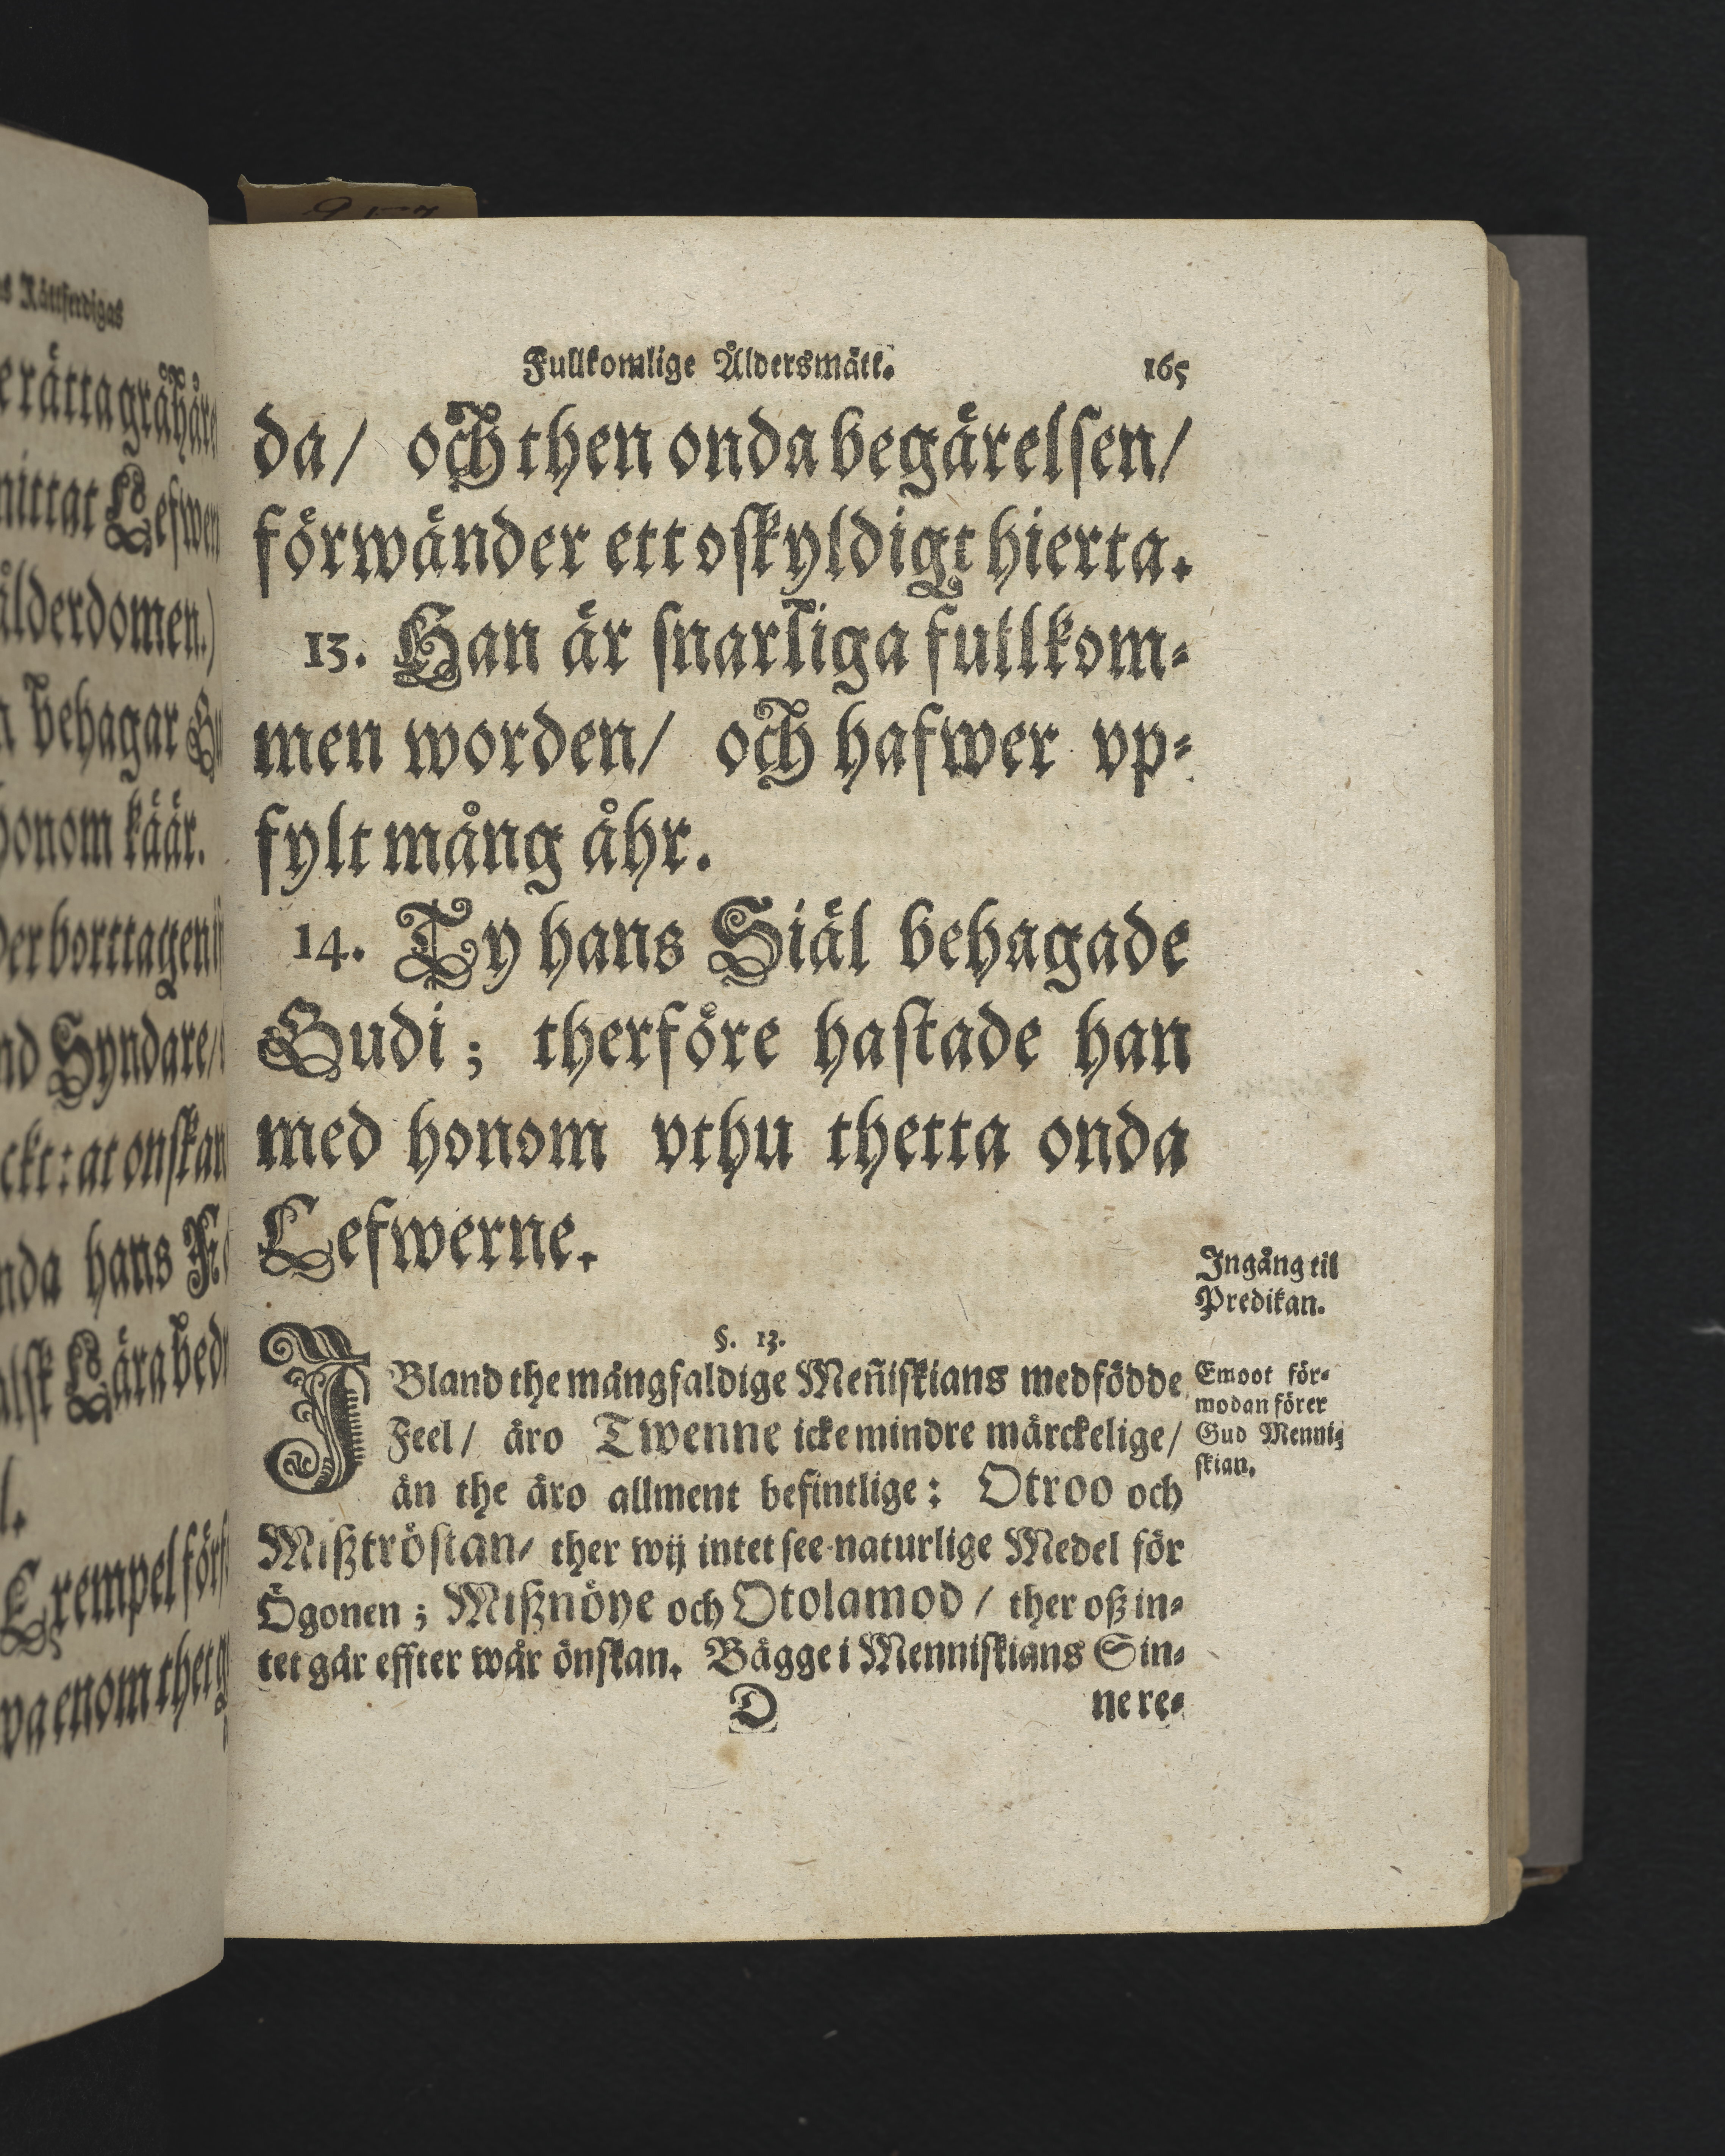 s Rättferdigas
e rätta gråhåre
mittat Lefwer
ålderdomen.)
behagar
honom käär.
borttagen
nd Syndare/
ckt: at onskan
nda hans
alsk Lära bed
l.
Exempel förs
wa enom thet
Fullkomlige Åldersmått. 165
da/ och then onda begärelsen/
förwänder ett oskyldigt hierta.
13. Han är snarliga fullkom⸗
men worden/ och hafwer vp⸗
fylt mång åhr.
14. Ty hans Siäl behagade
Gudi; therföre hastade han
med honom vthu thetta onda
Lefwerne.
Ingång til
Predikan.
§. 13.
IBland the mångfaldige Meñiskians medfödde
Feel/ äro Twenne icke mindre märckelige/
än the äro allment befintlige: Otroo och
Mißtröstan/ ther wij intet see naturlige Medel för
Ögonen; Mißnöye och Otolamod/ ther oß in⸗
tet går effter wår önskan. Bägge i Menniskians Sin⸗
Emoot för⸗
modan förer
Gud Menni⸗
skian.
D ne re⸗